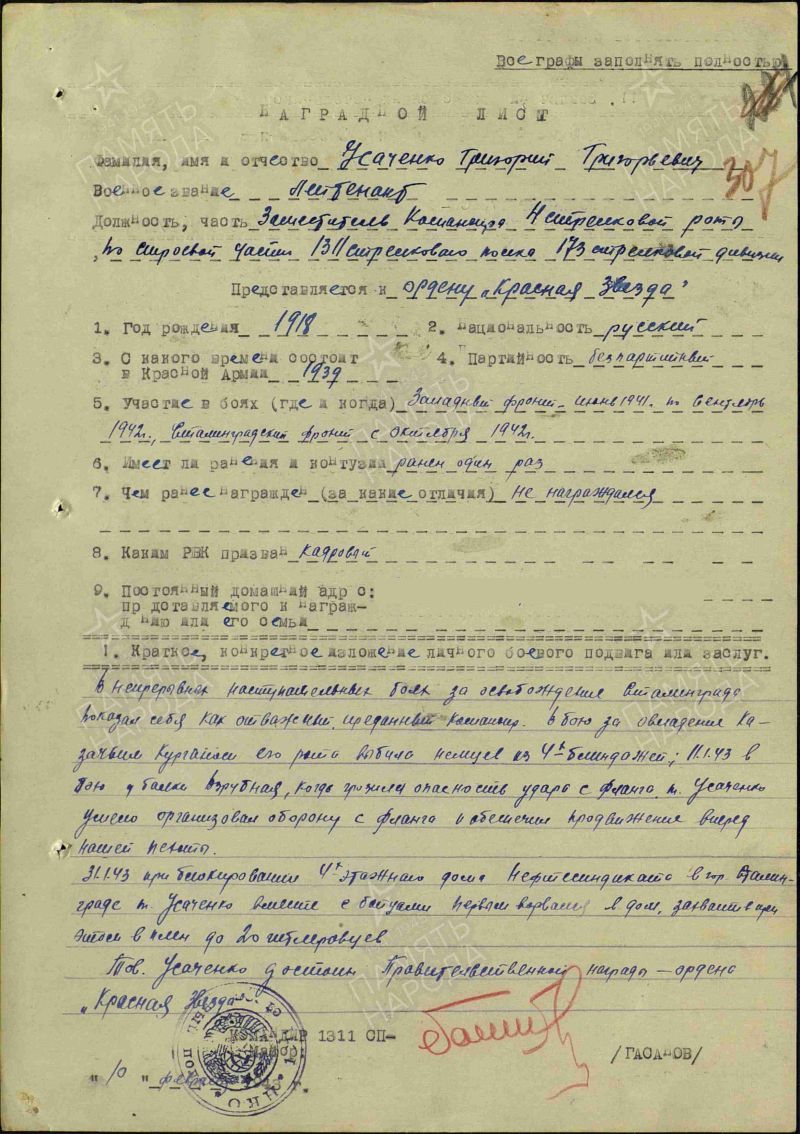 Все графы заполнять полностью.
307
НАГРАДНОЙ ЛИСТ
Фамилия, имя и отчество Усаченко Григорий Григорьевич
Военное звание Лейтенант
Должность, часть Заместитель Командира 4 стрелковой роты
по строевой части 1311 стрелкового полка 173 стрелковой дивизии
Представляется к ордену „Красная Звезда"
1. Год рождения 1918 2. Национальность русский
3. С какого времени состоит 4. Партийность беспартийный
в Красной Армии 1939
5. Участие в боях (где и когда) Западный фронт - июнь 1941г. по сентябрь
1942г., Сталинградский фронт с октября 1942г.
6. Имеет ли ранения и контузии ранен один раз
7. Чем ранее награжден (за какие отличия) не награждался
8. Каким РВК призван Кадровый
9. Постоянный домашний адр с:
пр дставляемого к награж-
д нию или его семьи
1. Краткое, конкретное изложение личного боевого подвига или заслуг.
В непрерывных наступательных боях за освобождение Сталинграда
показал себя как отважный, преданный командир. В бою за овладение Ка-
зачьим Курганом его рота выбила немцев из 4х блиндажей; 11.1.43 в
бою у балки Взрубная, когда грозила опасность удара с фланга, т. Усаченко
умело организовал оборону с фланга и обеспечил продвижение вперед
нашей пехоты.
31.1.43 при блокировании 4х этажного дома Нефтесиндиката в гор. Сталин-
граде т. Усаченко вместе с бойцами первым ворвался в дом, захватив при
этом в плен до 20 гитлеровцев
Тов. Усаченко достоин Правительственной награды — ордена
„Красная Звезда"
1311 СП-
майор
/ГАСАНОВ/
"10" февр
ПАМЯТЬ НАРОДА